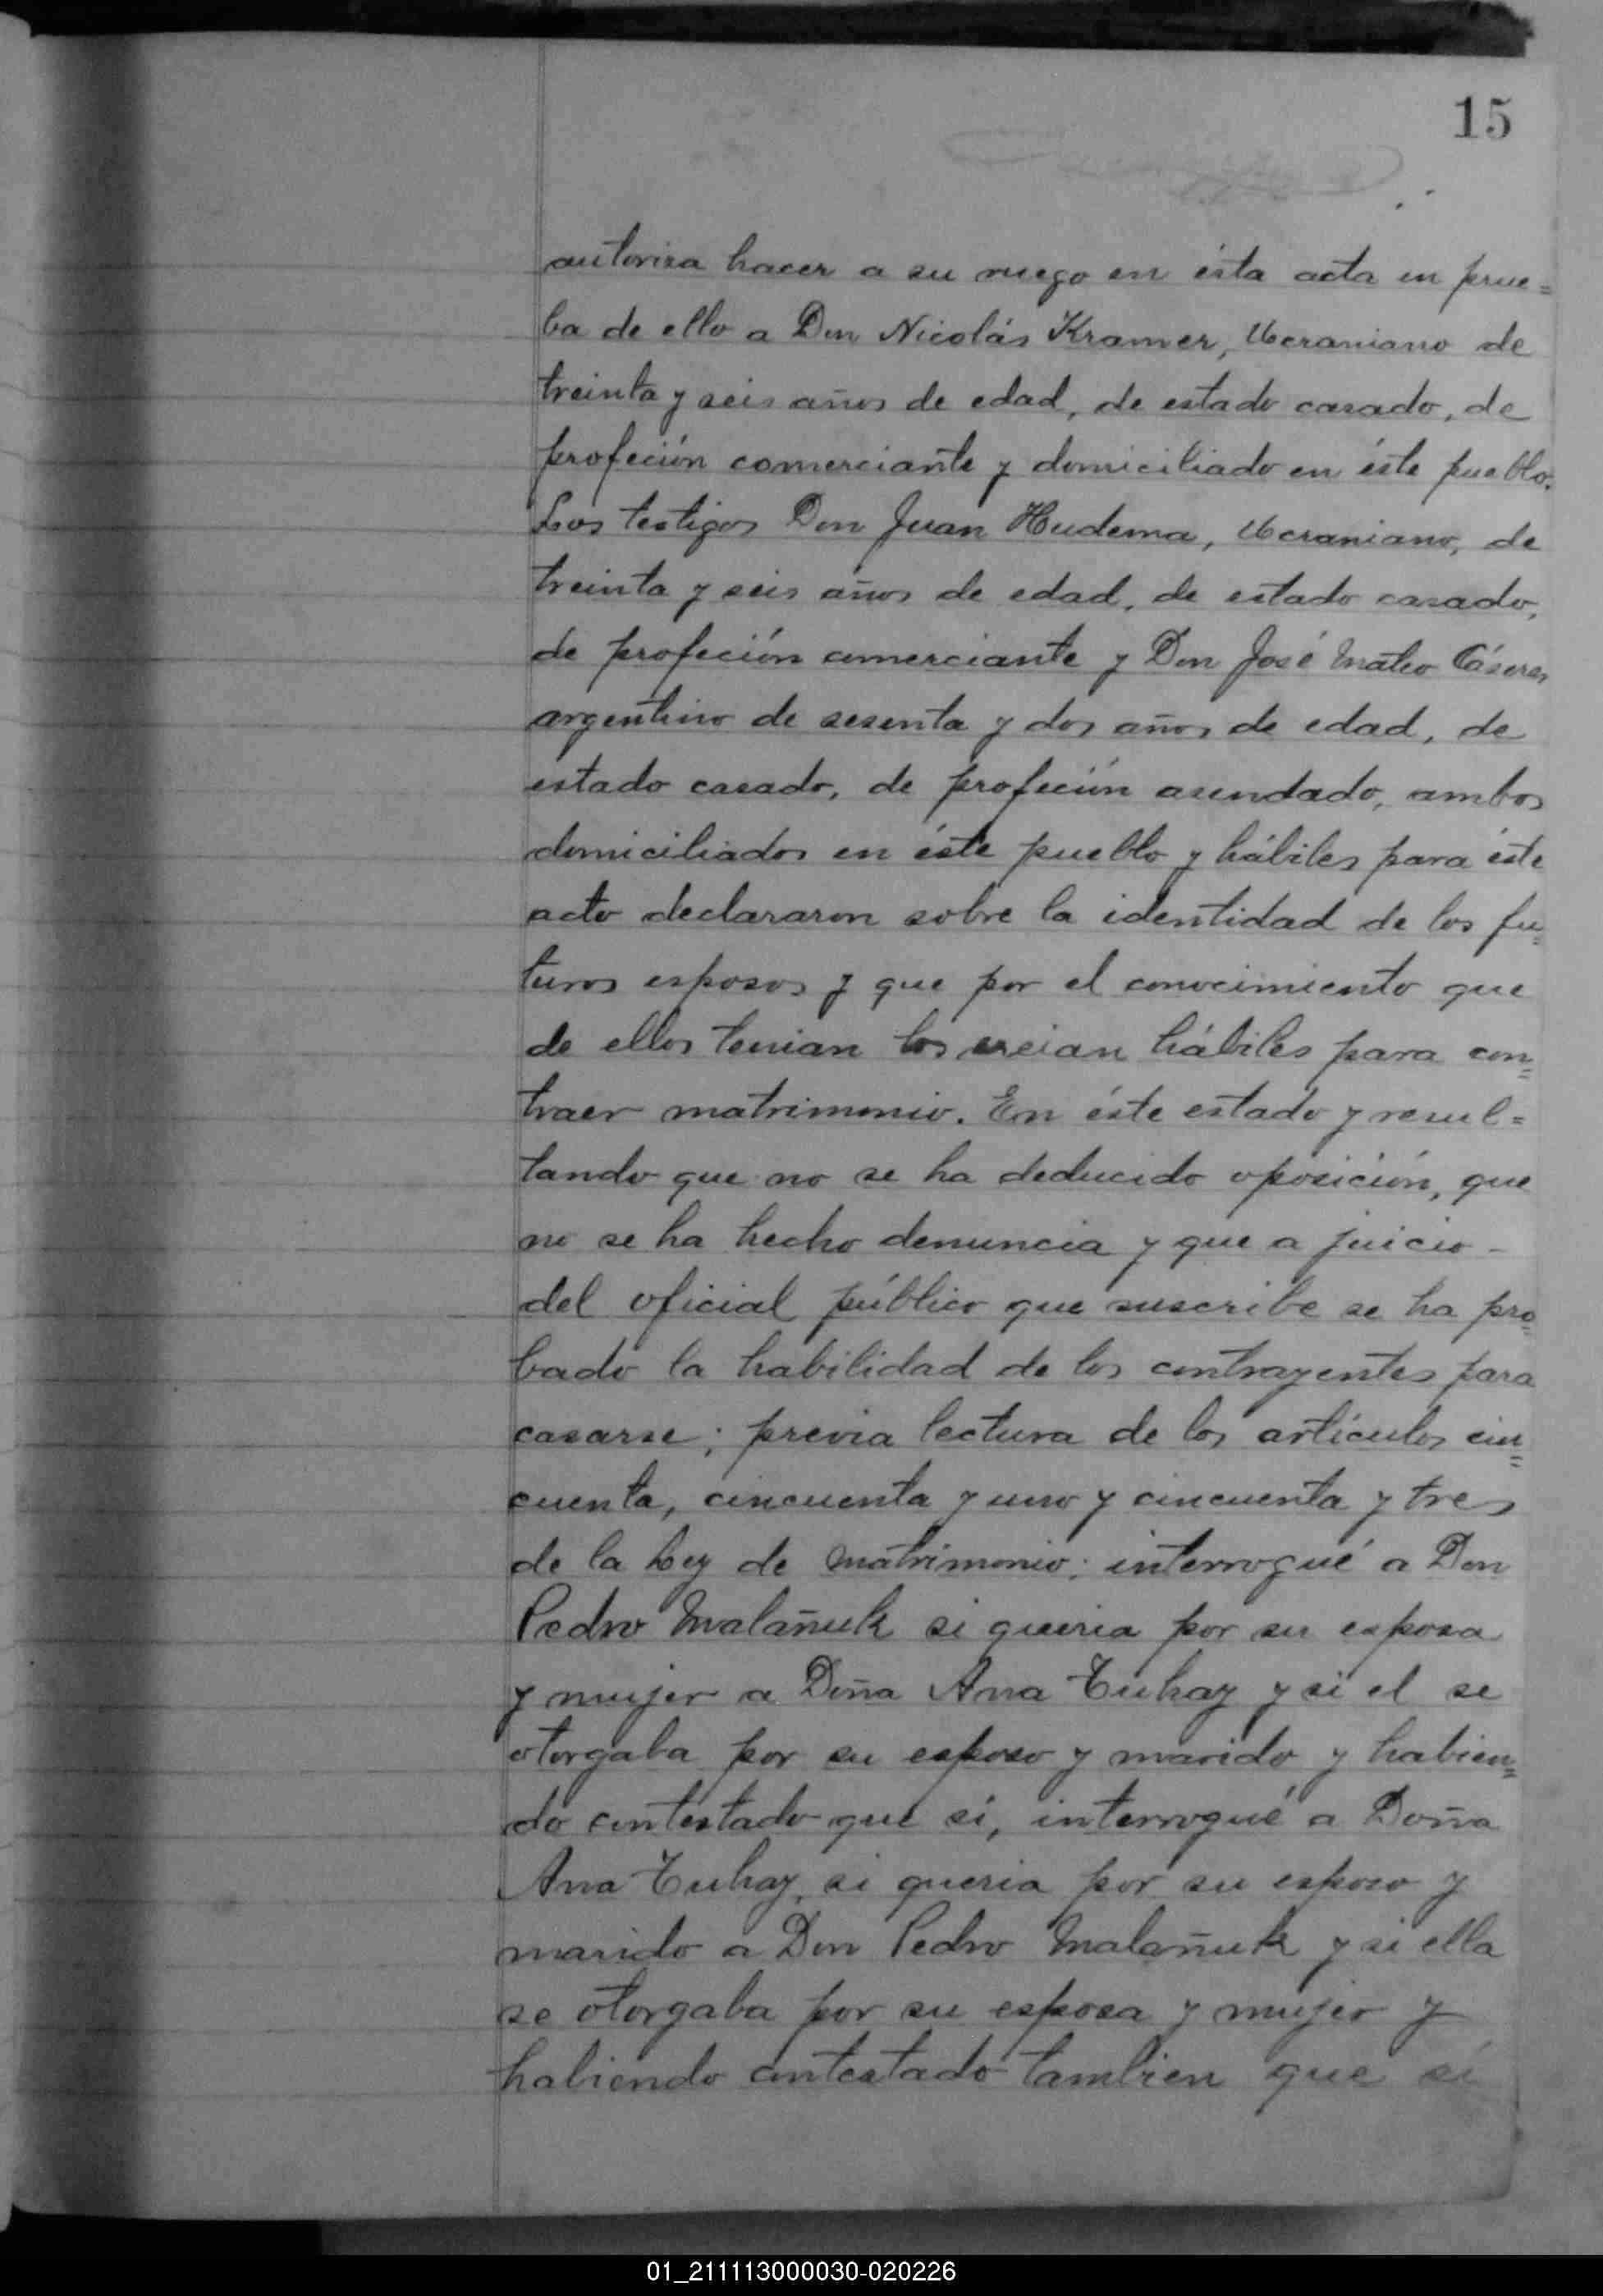 15
autoriza hacer a su ruego en ésta acta en prue=
ba de ello a Don Nicolás Kramer, Ucraniano de
treinta y seis años de edad, de estado casado, de
profeción comerciante y domiciliado en éste pueblo.
Los testigos Don Juan Hudema, Ucraniano, de
treinta y seis años de edad, de estado casado,
de profeción comerciante y Don José Mateo Cáseres
argentino de sesenta y dos años de edad, de
estado casado, de profeción asendado, ambos
domiciliados en éste pueblo y hábiles para éste
acto declararon sobre la identidad de los fu=
turos esposos y que por el conocimiento que
de ellos tenian los creian hábiles para con=
traer matrimonio. En éste estado y resul=
tando que no se ha deducido oposición, que
no se ha hecho denuncia y que a juicio -
del oficial público que suscribe se ha pro=
bado la habilidad de los contrayentes para
casarse; previa lectura de los artículos cin=
cuenta, cincuenta y uno y cincuenta y tres
de la Ley de Matrimonio; interrogué a Don
Pedro Malañuk si queria por su esposa
y mujer a Doña Ana Tuhay y si el se
otorgaba por su esposo y marido y habien=
do contestado que sí, interrogué a Doña
Ana Tuhay, si queria por su esposo y
marido a Don Pedro Malañuk y si ella
se otorgaba por su esposa y mujer y
habiendo contestado tambien que sí
01_211113000030-020226